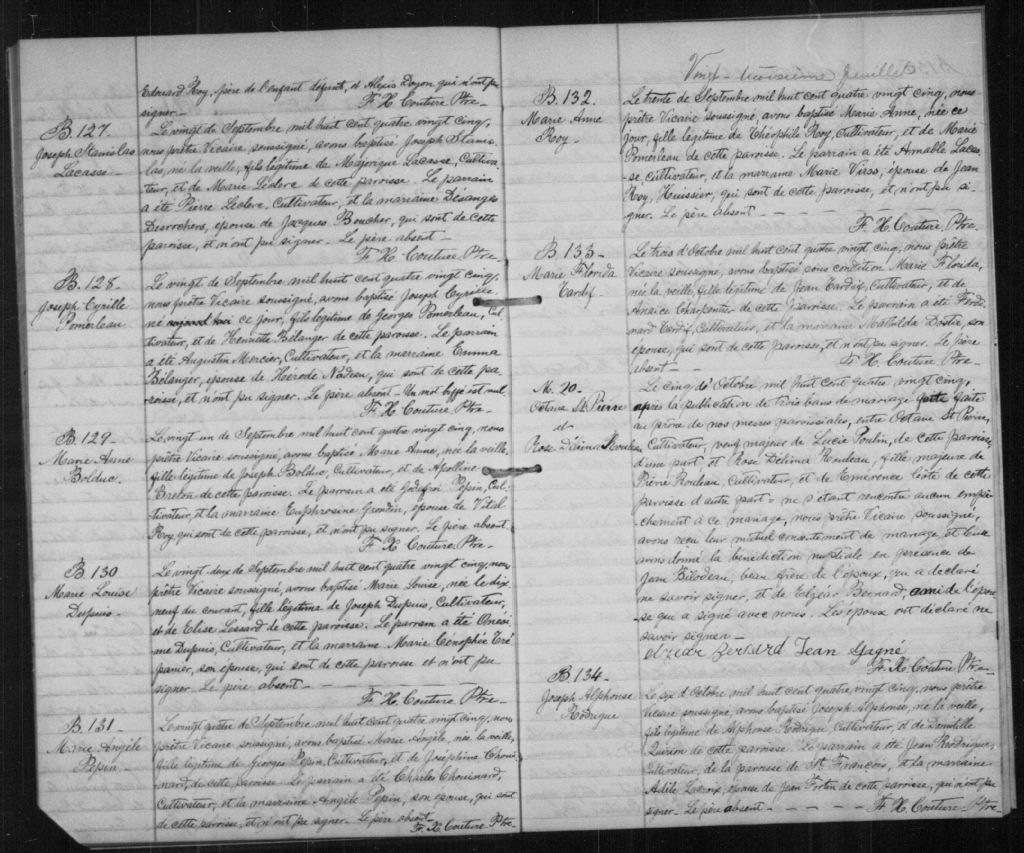 Edouard Roy, père de l'enfant défunt, et Alexis Doyon qui n'ont pu
signer. F. X. Couture Ptre
B. 127.
Joseph Stanislas
Lacasse
Le vingt de Septembre, mil huit cent quatre vingt cinq,
nous prêtre Vicaire soussigné, avons baptisé Joseph Stanis-
las, né la veille, fils légitime de Majorique Lacasse, Cultiva-
teur, et de Marie Leclerc de cette paroisse. Le parrain
a été Pierre Leclerc, Cultivateur, et la marraine Désanges
Desrochers, épouse de Jacques Boucher, qui sont de cette
paroisse, et n'ont pu signer. Le père absent
F. X. Couture Ptre
B. 128
Joseph Cyrille
Pomerleau
Le vingt de Septembre, mil huit cent quatre vingt cinq,
nous prêtre Vicaire soussigné, avons baptisé Joseph Cyrille,
né ce jour, fils légitime de Georges Pomerleau, Cul-
tivateur, et de Henriette Bélanger de cette paroisse. Le parrain
a été Augustin Mercier, Cultivateur, et la marraine Emma
Bélanger, épouse de Hérode Nadeau, qui sont de cette pa-
roisse, et n'ont pu signer. Le père absent - Un mot biffé est nul
F. X. Couture Ptre
B. 129
Marie Anne
Bolduc
Le vingt un de Septembre mil huit cent quatre vingt cinq, nous
prêtre Vicaire soussigné, avons baptisé Marie Anne, née la veille,
fille légitime de Joseph Bolduc, Cultivateur, et de Apolline
Breton de cette paroisse. Le parrain a été Godefroi Pepin, Cul-
tivateur, et la marraine Euphrosine Grondin, épouse de Vital
Roy qui sont de cette paroisse, et n'ont pu signer. Le père absent.
F. X. Couture Ptre
B 130
Marie Louise
Dupuis
Le vingt deux de Septembre mil huit cent quatre vingt cinq, nous
prêtre Vicaire soussigné, avons baptisé Marie Louise, née le dix
neuf du courant, fille légitime de Joseph Dupuis, Cultivateur,
et de Elise Lessard de cette paroisse. Le parrain a été Onési-
me Dupuis, Cultivateur, et la marraine Marie Cénophée Tré
panier, son épouse, qui sont de cette paroisse et n'ont pu
signer. Le père absent
F. X. Couture Ptre
B 131
Marie Angèle
Pepin
Le vingt quatre de Septembre, mil huit cent quatre vingt cinq, nous
prêtre Vicaire soussigné, avons baptisé Marie Angèle, née la veille,
fille légitime de Georges Pepin, Cultivateur, et de Joséphine Choui
nard, de cette paroisse. Le parrain a été Charles Chouinard,
Cultivateur, et la marraine Angèle Pepin, son épouse, qui sont
de cette paroisse, et n'ont pu signer. Le père absent
F. X. Couture Ptre
Vingt-troisième feuillet
B. 132
Marie Anne
Roy
Le trente de Septembre mil huit cent quatre vingt cinq, nous
prêtre Vicaire soussigné, avons baptisé Marie Anne, née ce
jour, fille légitime de Théophile Roy, Cultivateur, et de Marie
Pomerleau de cette paroisse. Le parrain a été Amable Lacas
-se Cultivateur, et la marraine Marie, épouse de Jean
Roy, Huissier, qui sont de cette paroisse, et n'ont pu si-
gner. Le père absent
F. X. Couture Ptre
B 133
Marie Florida
Tardif
Le trois d'Octobre mil huit cent quatre vingt cinq, nous prêtre
Vicaire soussigné, avons baptisé sous condition Marie Florida,
née la veille, fille légitime de Jean Tardif, Cultivateur, et de
Anaïce Charpentier de cette paroisse. Le parrain a été Ferdi
nard Tardif, Cultivateur, et la marraine Mathilda Dostie, son
épouse, qui sont de cette paroisse, et n'ont pu signer. Le père
absent F. X. Couture Ptre
M. 20
Octave St Pierre
et
Rose Délima Rouleau
Le cinq d'Octobre mil huit cent quatre vingt cinq,
après la publication de trois bans de mariage faite faite
au prône de nos messes paroissiales, entre Octave St Pierre,
Cultivateur, veuf majeur de Lucie Poulin, de cette paroisse,
d'une part et Rose Délima Rouleau, fille majeure de
Pierre Rouleau, Cultivateur, et de Emerence de cette
paroisse d'autre part; ne s'étant rencontré aucun empê
chement à ce mariage, nous prêtre Vicaire soussigné,
avons reçu leur mutuel consentement de mariage, et leur
avons donné la bénédiction nuptiale en présence de
Jean Bilodeau, beau frère de l'époux, qui a déclaré
ne savoir signer, et de Elzéar Bernard, ami de l'épou-
se qui a signé avec nous. Les époux ont déclaré ne
savoir signer
Elzear Bernard Jean Gagné
F. X. Couture Ptre
B 134
Joseph Alphonse
Rodrigue
Le six d'Octobre mil huit cent quatre vingt cinq, nous prêtre
Vicaire soussigné, avons baptisé Joseph Alphonse, né la veille,
fils légitime de Alphonse Rodrigue, Cultivateur, et de Domitille
Quirion de cette paroisse. Le parrain a été Jean Rodrigue,
Cultivateur, de la paroisse de St François, et la marraine
Adèle Lacroix, épouse de Jean Fortin de cette paroisse, qui n'ont pu
signer - Le père absent F. X. Couture Ptre